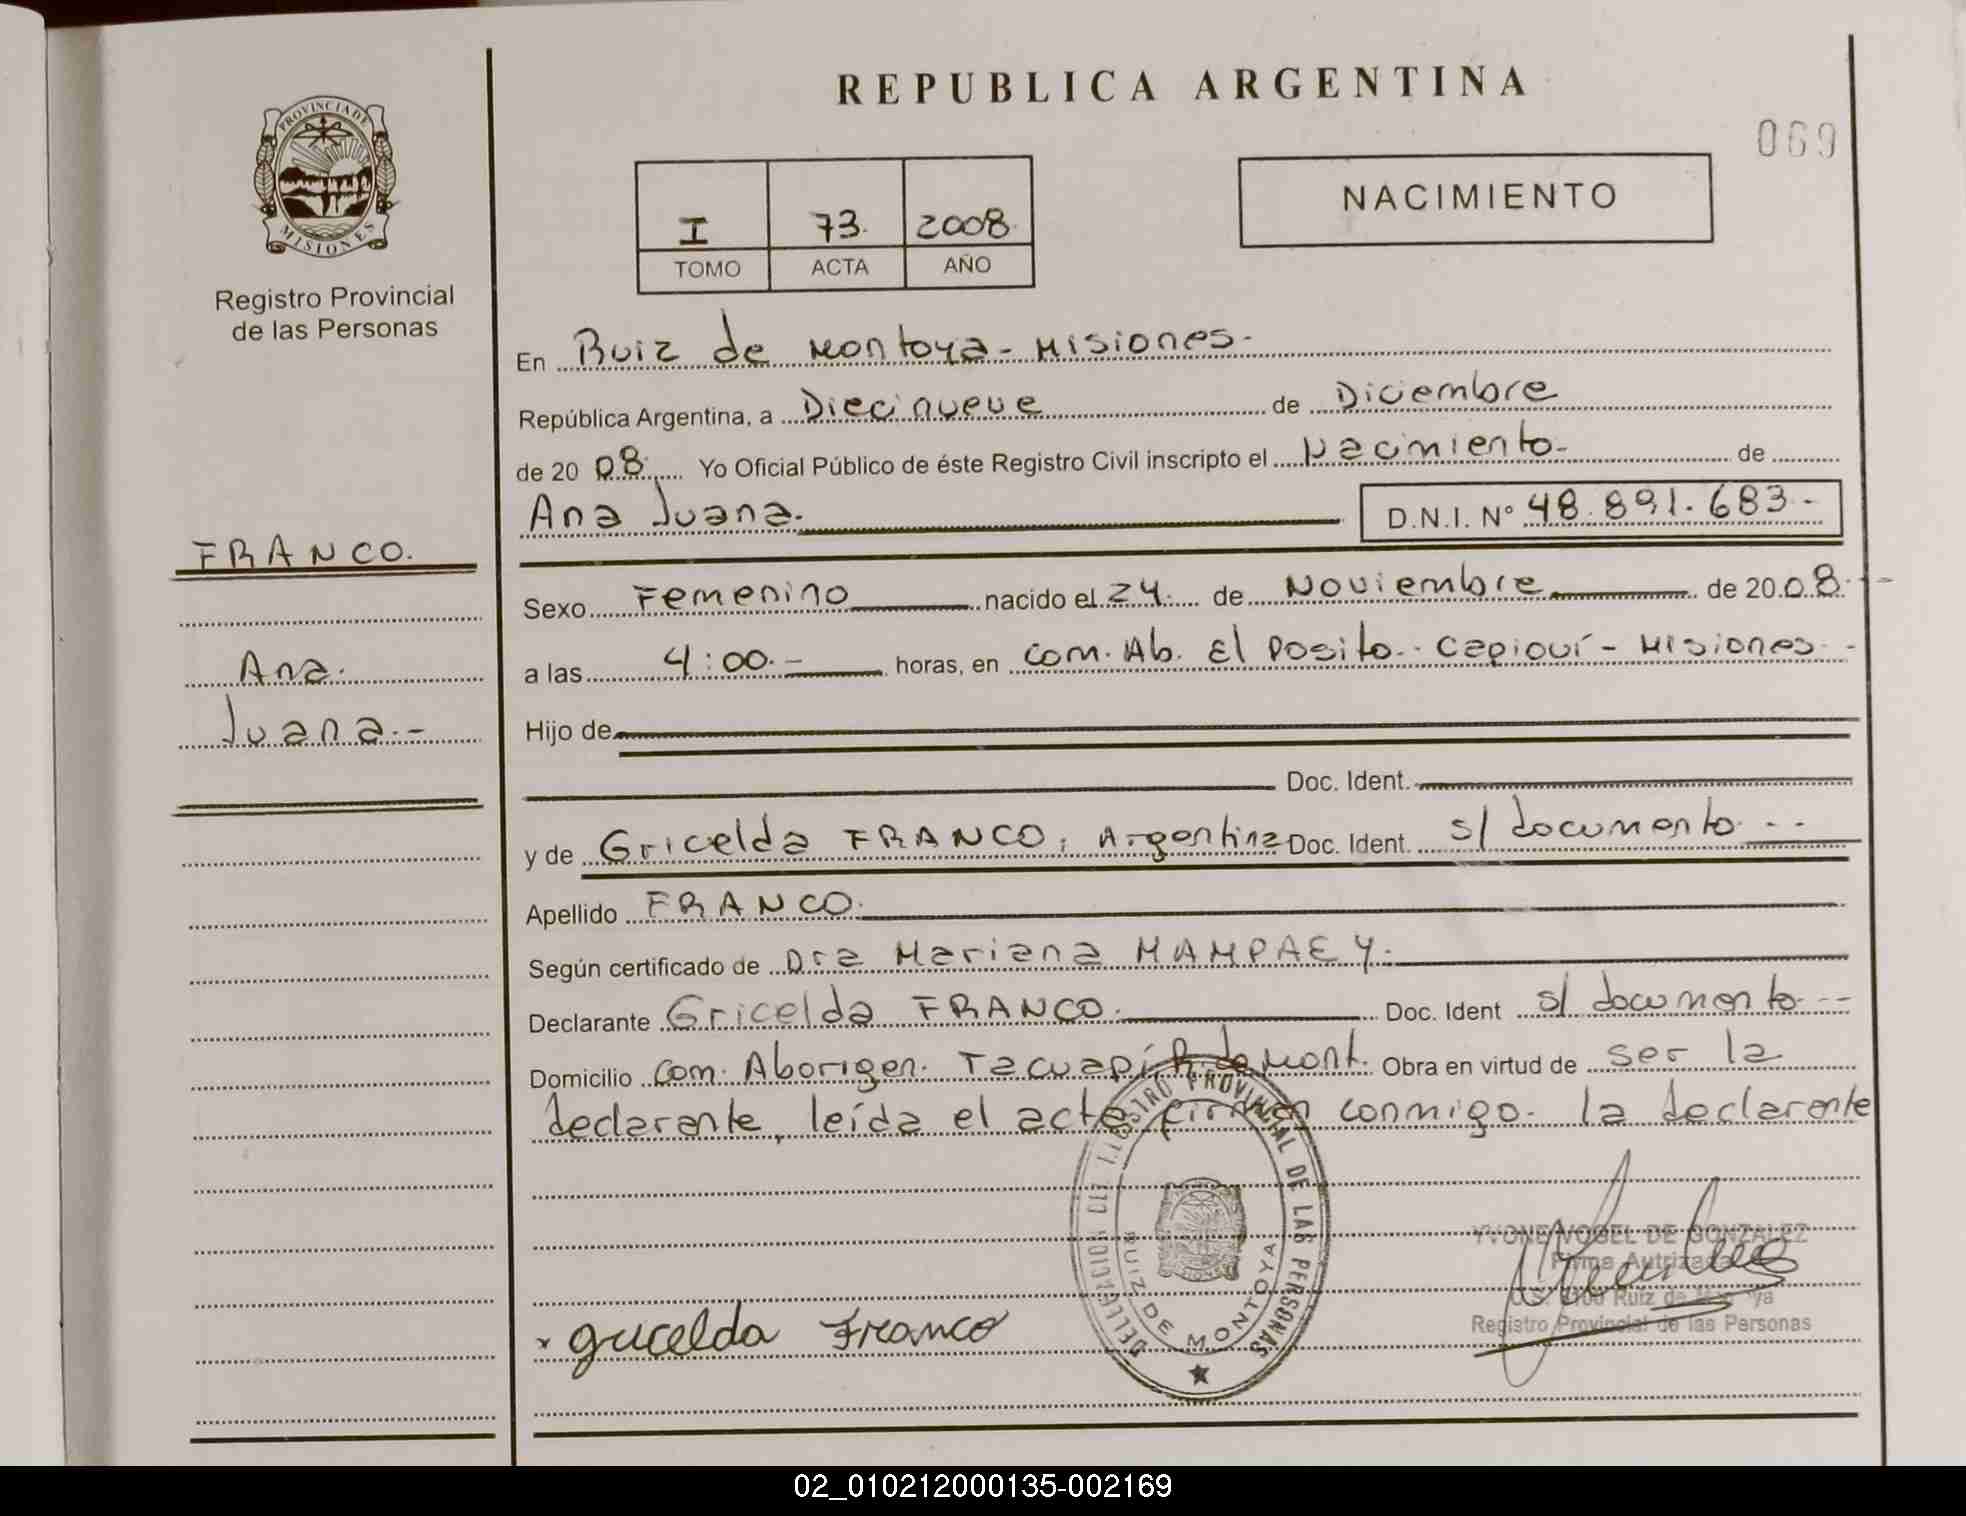 REPUBLICA ARGENTINA
069
PROVINCIA DE
MISIONES
Registro Provincial
de las Personas
I 73. 2008.
TOMO ACTA AÑO
NACIMIENTO
En Ruiz de Montoya - Misiones.-
República Argentina, a Diecinueve de Diciembre
de 20 08. Yo Oficial Público de éste Registro Civil inscripto el Nacimiento.- de
Ana Juana.
D.N.I. N° 48.891.683.-
FRANCO.
Ana.
Juana.-
Sexo Femenino nacido el 24. de Noviembre de 20.08.-
a las 4:00.- horas, en Com. Ab. El Posito.- Capioví - Misiones.-
Hijo de
Doc. Ident.
y de Gricelda FRANCO, Argentina Doc. Ident. s/ documento.--
Apellido FRANCO.
Según certificado de Dra Mariana MAMPAEY.
Declarante Gricelda FRANCO. Doc. Ident s/ documento.--
Domicilio Com. Aborigen. Tacuapí R. de Mont. Obra en virtud de ser la
declarante, leída el acta firman conmigo. la declarante
DELEGACION DEL REGISTRO PROVINCIAL DE LAS PERSONAS
RUIZ DE MONTOYA
YVONE VOGEL DE GONZALEZ
Firma Autrizada
Ruiz de
Registro Provincial de las Personas
x gricelda Franco
02_010212000135-002169